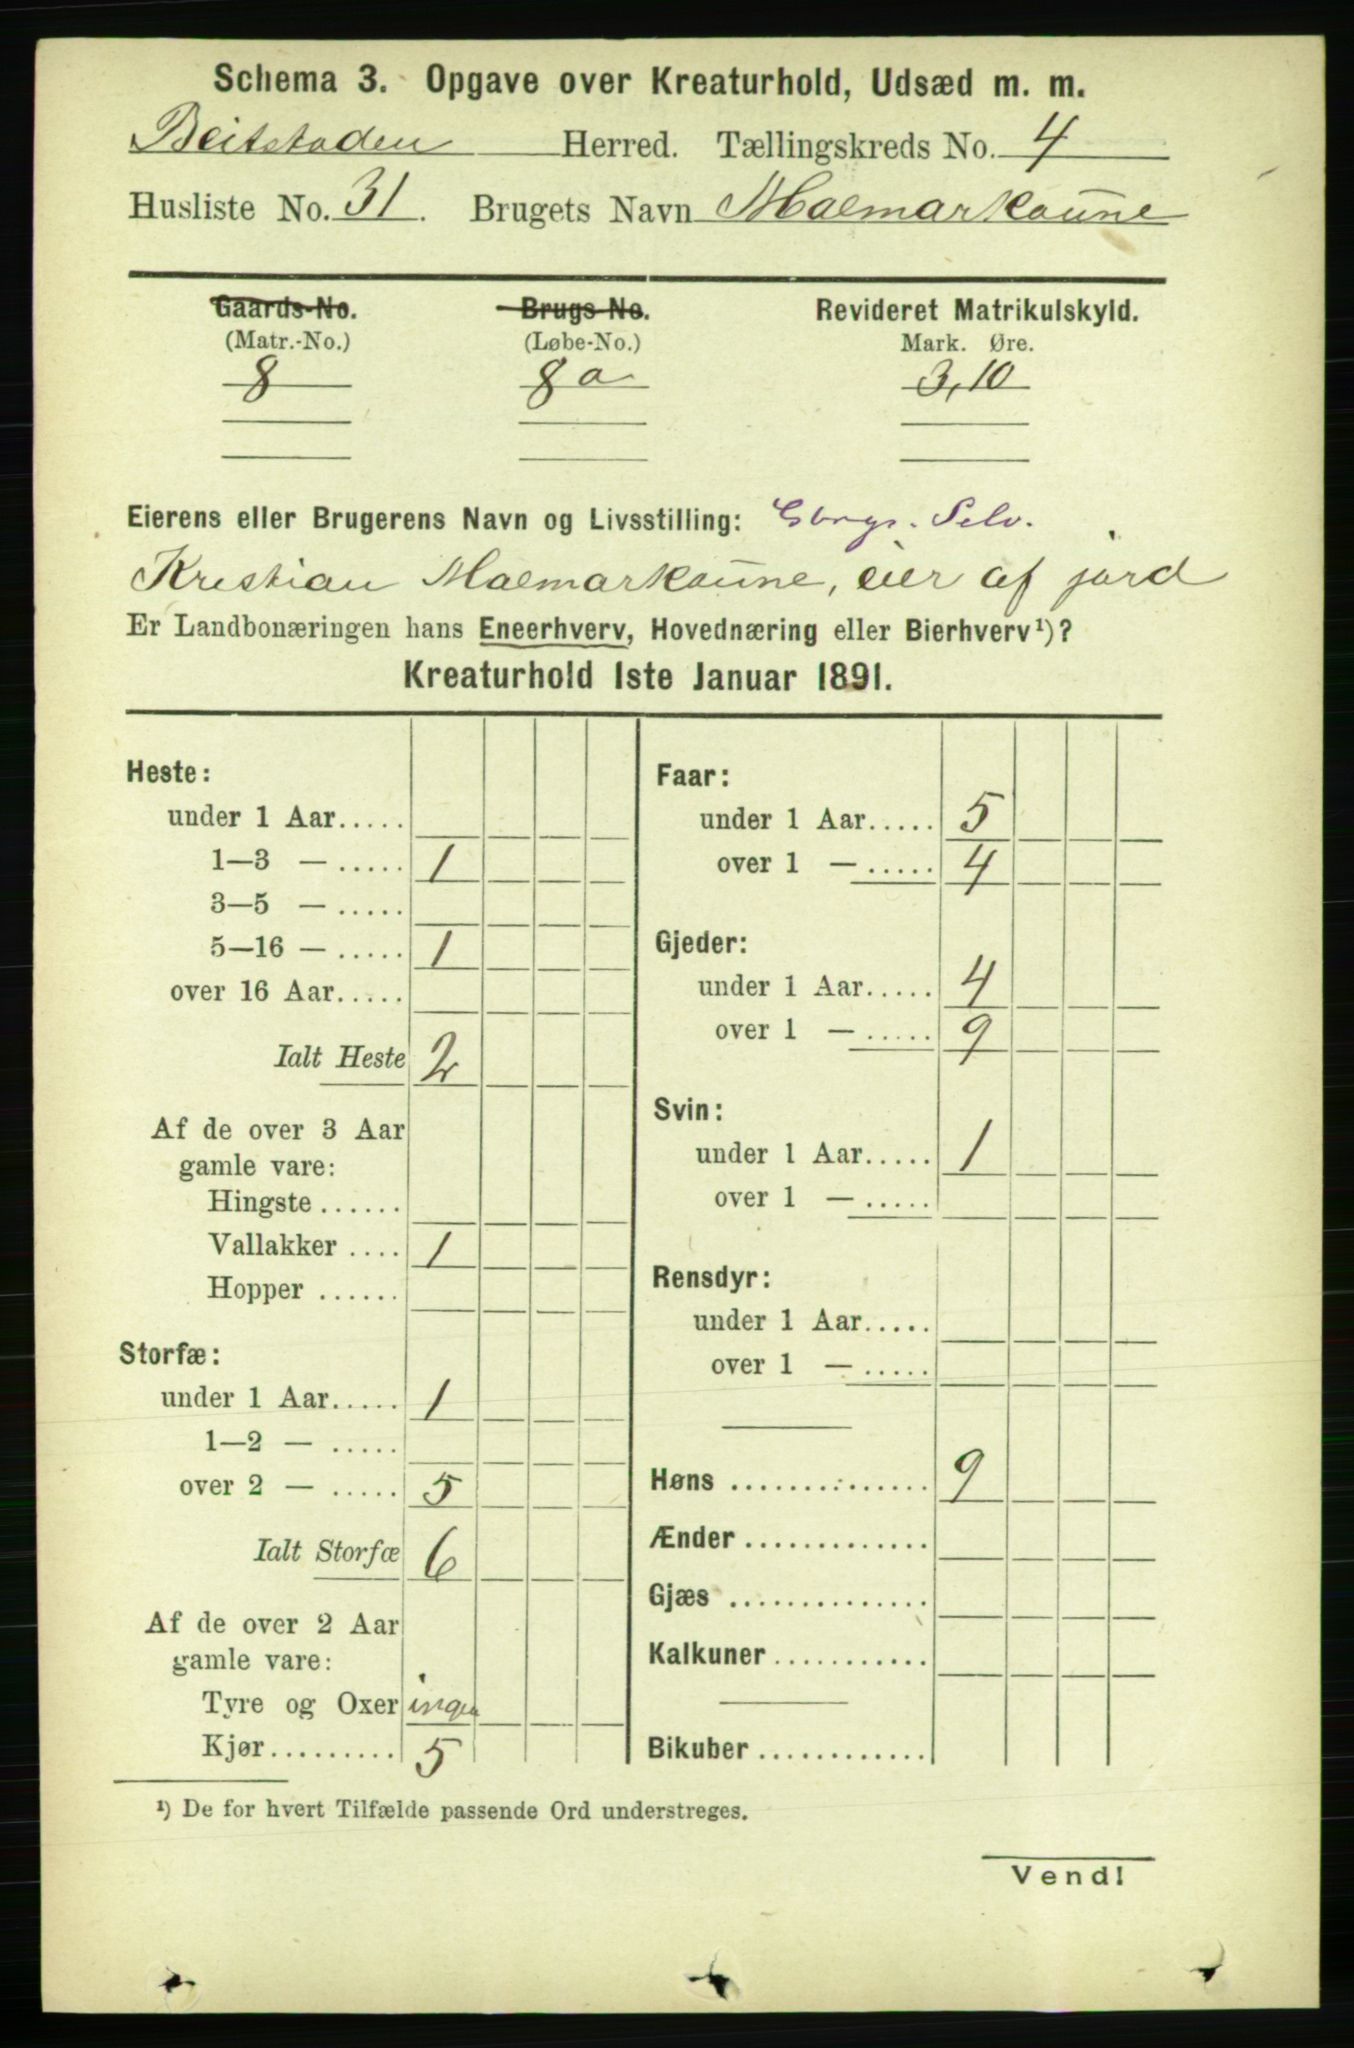 Schema 3. Opgave over Kreaturhold, Udsæd m. m.
Beitstaden Herred. Tællingskreds No. 4
Husliste No. 31. Brugets Navn Malmarkaune
Gaards-No. Brugs-No. Revideret Matrikulskyld.
(Matr.-No.) (Løbe-No.) Mark. Øre.
8 8 a 3,10
Eierens eller Brugerens Navn og Livsstilling: Gbrgr. Selv.
Kristian Malmarkaune, eier af jord
Er Landbonæringen hans Eneerhverv, Hovednæring eller Bierhverv¹)?
Kreaturhold 1ste Januar 1891.
Heste:
under 1 Aar.....
1—3 — ..... 1
3—5 — .....
5—16 — ..... 1
over 16 Aar.....
Ialt Heste 2
Af de over 3 Aar
gamle vare:
Hingste ......
Vallakker .... 1
Hopper ......
Storfæ:
under 1 Aar..... 1
1—2 — .....
over 2 — ..... 5
Ialt Storfæ 6
Af de over 2 Aar
gamle vare:
Tyre og Oxer ingen
Kjør......... 5
Faar:
under 1 Aar..... 5
over 1 — ..... 4
Gjeder:
under 1 Aar..... 4
over 1 — ..... 9
Svin:
under 1 Aar..... 1
over 1 — .....
Rensdyr:
under 1 Aar.....
over 1 — .....
Høns .............. 9
Ænder .............
Gjæs ..............
Kalkuner ...........
Bikuber .............
¹) De for hvert Tilfælde passende Ord understreges.
Vend!